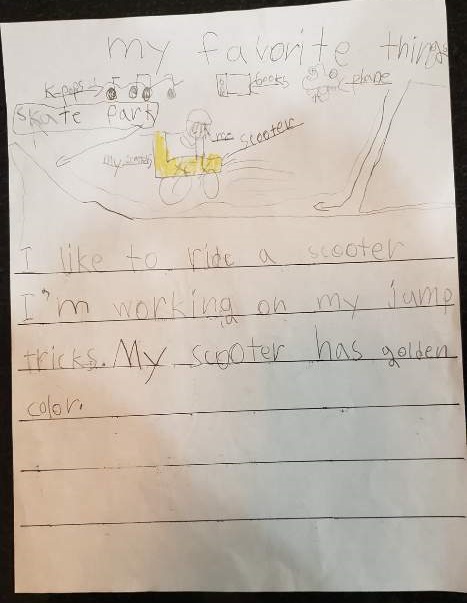 my favorite things
K-pops books plane
Skate Park
me scooter
my
I like to ride a scooter
I'm working on my jump
tricks. My scooter has golden
color.